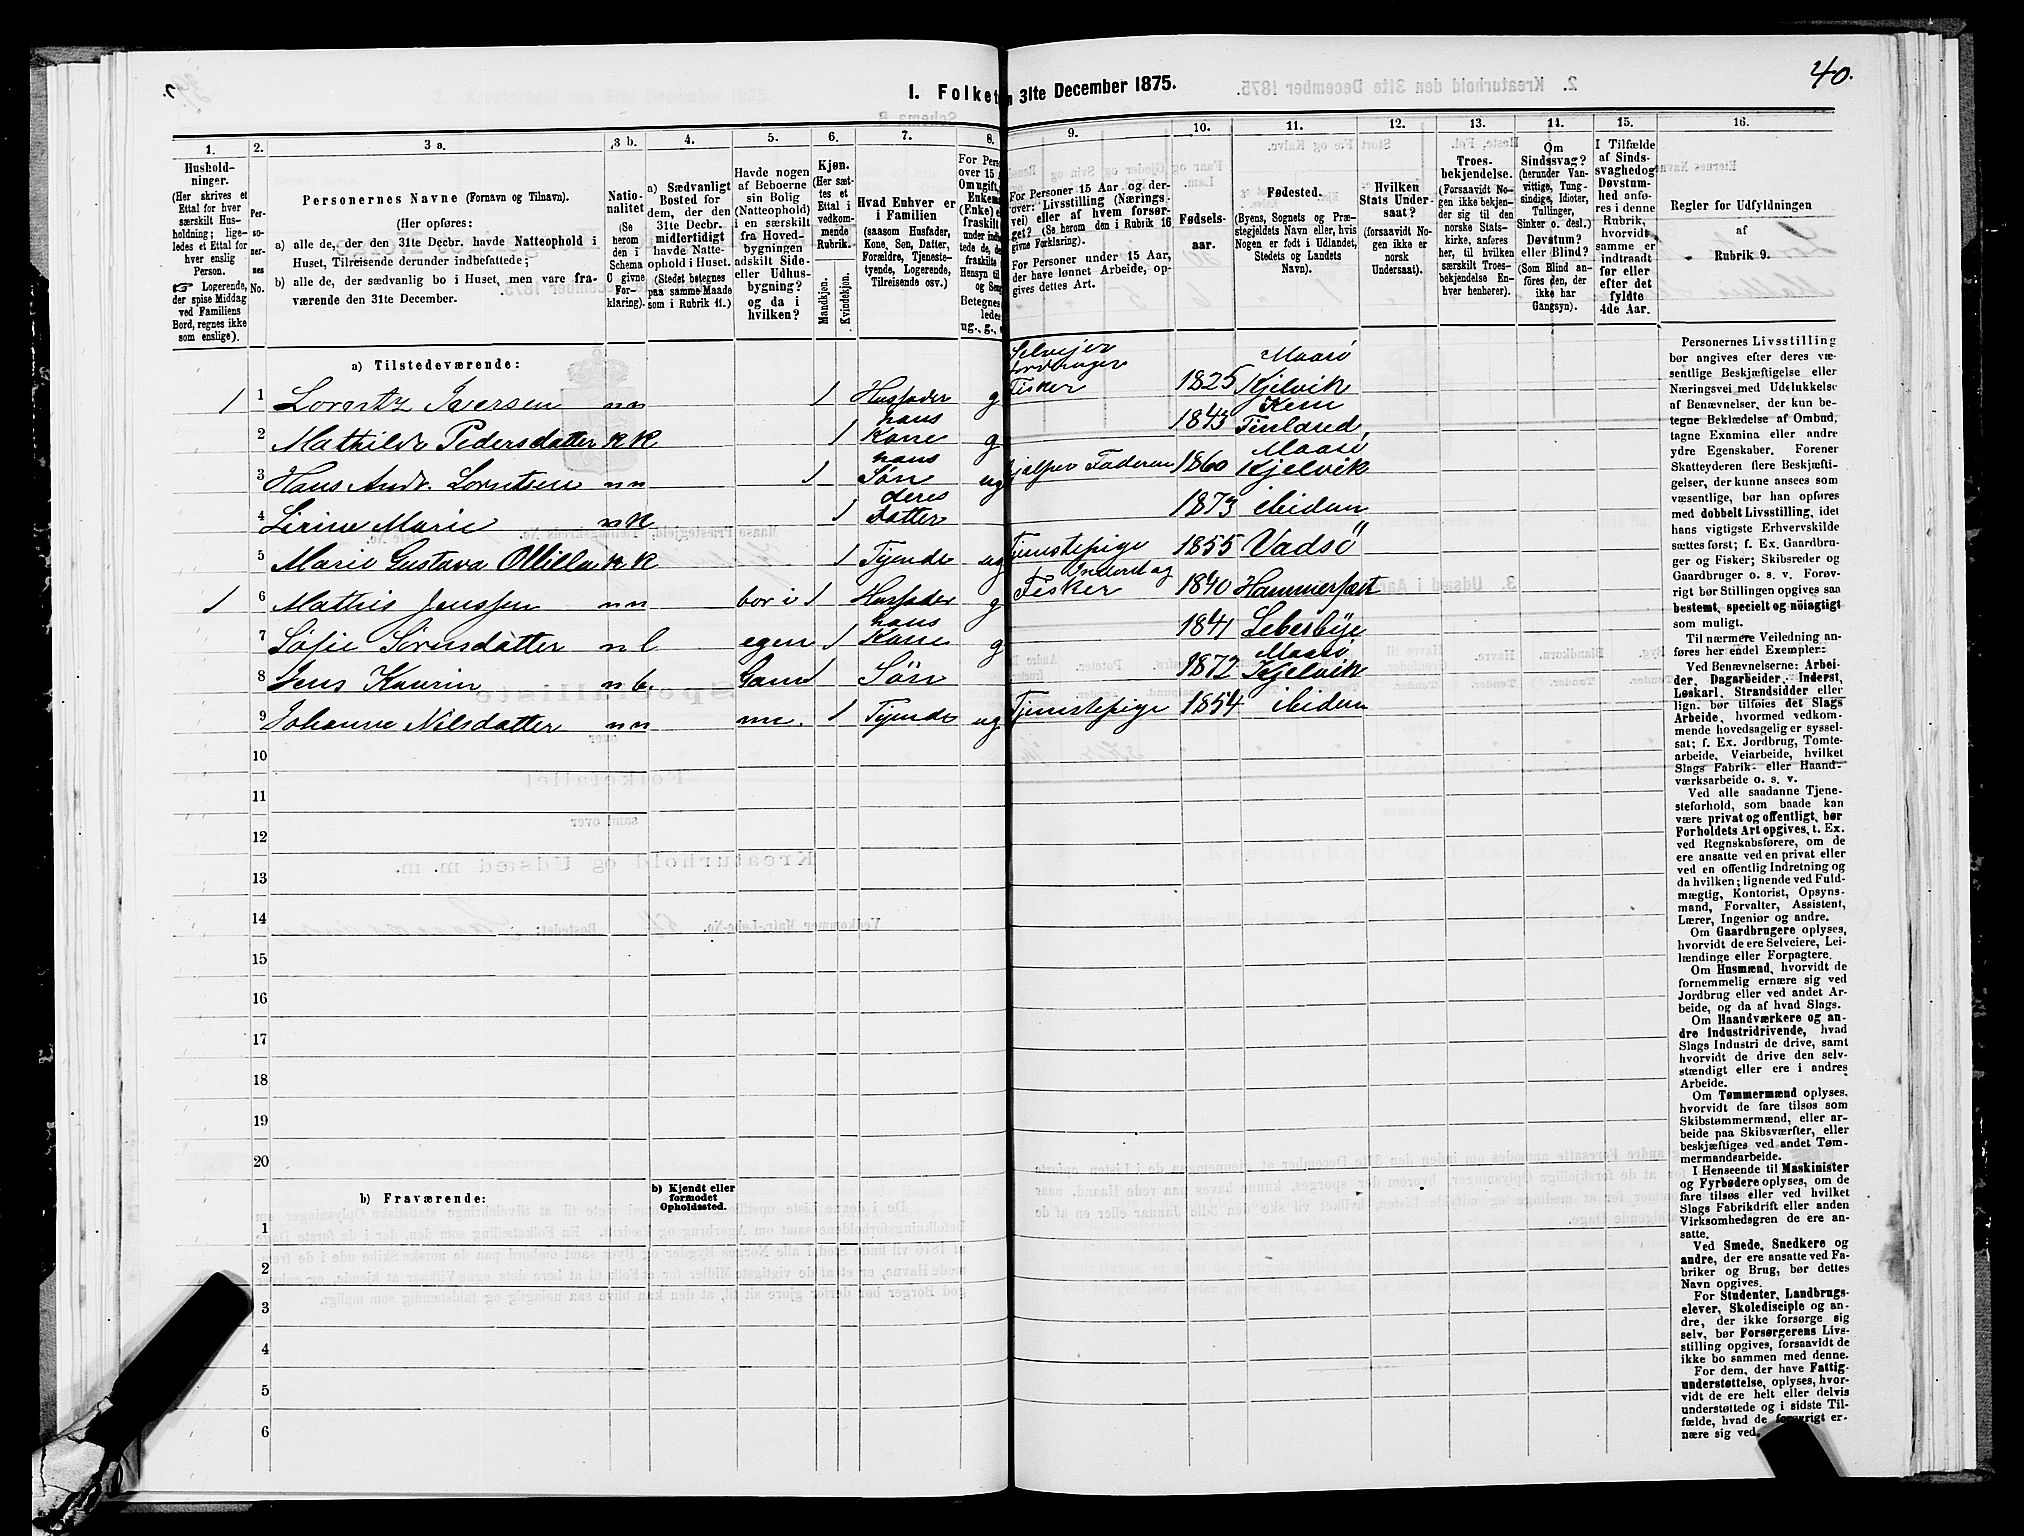 40.
I. Folketa
n 31te December 1875.
1.
2.
3 a.
3 b.
4.
5.
6.
7.
8.
9.
10.
11.
12.
13.
14.
15.
16.
Hushold-
ninger.
(Her skrives et
Ettal for hver
særskilt Hus-
holdning; lige-
ledes et Ettal for
hver enslig
Person.
☞ Logerende,
der spise Middag
ved Familiens
Bord, regnes ikke
som enslige).
Per-
so-
ner-
nes
No.
Personernes Navne (Fornavn og Tilnavn).
(Her opføres:
a) alle de, der den 31te Decbr. havde Natteophold i
Huset, Tilreisende derunder indbefattede;
b) alle de, der sædvanlig bo i Huset, men vare fra-
værende den 31te December.
Natio-
nalitet
(Se
herom
den i
Schema
C
givne
For-
klaring).
a) Sædvanligt
Bosted for
dem, der den
31te Decbr.
midlertidigt
havde Natte-
ophold i Huset.
(Stedet betegnes
paa samme Maade
som i Rubrik 11.)
Havde nogen
af Beboerne
sin Bolig
(Natteophold)
i en særskilt
fra Hoved-
bygningen
adskilt Side-
eller Udhus-
bygning?
og da i
hvilken?
Kjøn.
(Her sæt-
tes et
Ettal i
vedkom-
mende
Rubrik.
Mandkjøn.
Kvindekjøn.
Hvad Enhver er
i Familien
(saasom Husfader,
Kone, Søn, Datter,
Forældre, Tjeneste-
tyende, Logerende,
Tilreisende osv.)
For Personer 15 Aar og der-
over: Livsstilling (Nærings-
vei) eller af hvem forsør-
get? (Se herom den i Rubrik 16
givne Forklaring).
For Personer under 15 Aar,
der have lønnet Arbeide, op-
gives dettes Art.
Fødsels-
aar.
Fødested.
(Byens, Sognets og Præ-
stegjeldets Navn eller, hvis
Nogen er født i Udlandet,
Stedets og Landets
Navn).
Hvilken
Stats Under-
saat?
(forsaavidt No-
gen ikke er
norsk
Undersaat).
Troes-
bekjendelse.
(Forsaavidt No-
gen ikke bekjen-
der sig til den
norske Stats-
kirke, anføres
her, til hvilken
særskilt Troes-
bekjendelse En-
hver henhører).
Om
Sindssvag?
(herunder Van-
vittige, Tung-
sindige, Idioter,
Tullinger,
Sinker o. desl.)
Døvstum?
eller Blind?
(Som Blind an-
føres den, der
ikke har
Gangsyn).
I Tilfælde
af Sinds-
svaghed og
Døvstum-
hed anfø-
res i denne
Rubrik,
hvorvidt
samme er
indtraadt
før eller
efter det
fyldte
4de Aar.
Regler for Udfyldningen
af
Rubrik 9.
a) Tilstedeværende:
1 1 Lorentz Iversen nn 1 Husfader g Selvejer Jordbruger Fisker 1825 Maasø Kjelvik
2 Mathilde Pedersdatter kk 1 hans Kone g 1843 Kemi Finland
3 Hans Andr. Lorntsen nn 1 hans Søn ug hjælper Faderen 1860 Maasø Kjelvik
4 Lirine Marie nk 1 deres Datter 1873 ibidem
5 Marie Gustava Ollilla kk 1 Tjende ug Tjenstepige 1855 Vadsø
1 6 Mathis Jenssen nn bor i 1 Husfader g Inderst og Fisker 1840 Hammerfest
7 Sofie Sørensdatter nl egen 1 hans Kone g 1841 Lebesbye
8 Jens Kaurin nb. Gam 1 Søn 1872 Maasø Kjelvik
9 Johanne Nilsdatter nn me. 1 Tjende ug Tjenstepige 1854 ibidem
10
11
12
13
14
15
16
17
18
19
20
b) Fraværende:
b) Kjendt eller
formodet
Opholdssted.
1
2
3
4
5
6
Personernes Livsstilling
bør angives efter deres væ-
sentlige Beskjæftigelse eller
Næringsvei med Udelukkelse
af Benævnelser, der kun be-
tegne Beklædelse af Ombud,
tagne Examina eller andre
ydre Egenskaber. Forener
Skatteyderen flere Beskjæfti-
gelser, der kunne ansees som
væsentlige, bør han opføres
med dobbelt Livsstilling, idet
hans vigtigste Erhvervskilde
sættes først; f. Ex. Gaardbru-
ger og Fisker; Skibsreder og
Gaardbruger o. s. v. Forøv-
rigt bør Stillingen opgives saa
bestemt, specielt og nøiagtigt
som muligt.
Til nærmere Veiledning an-
føres her endel Exempler:
Ved Benævnelserne: Arbei-
der, Dagarbeider, Inderst,
Løskarl, Strandsidder eller
lign. bør tilføies det Slags
Arbeide, hvormed vedkom-
mende hovedsagelig er syssel-
sat; f. Ex. Jordbrug, Tomte-
arbeide, Veiarbeide, hvilket
Slags Fabrik- eller Haand-
værksarbeide o. s. v.
Ved alle saadanne Tjene-
steforhold, som baade kan
være privat og offentligt, bør
Forholdets Art opgives, t. Ex.
ved Regnskabsførere, om de
ere ansatte ved en privat eller
ved en offentlig Indretning og
da hvilken; lignende ved Fuld-
mægtig, Kontorist, Opsyns-
mand, Forvalter, Assistent,
Lærer, Ingeniør og andre.
Om Gaardbrugere oplyses,
hvorvidt de ere Selveiere, Lei-
lændinge eller Forpagtere.
Om Husmænd, hvorvidt de
fornemmelig ernære sig ved
Jordbrug eller ved andet Ar-
beide, og da af hvad Slags.
Om Haandværkere og an-
dre Industridrivende, hvad
Slags Industri de drive, samt
hvorvidt de drive den selv-
stændigt eller ere i andres
Arbeide.
Om Tømmermænd oplyses,
hvorvidt de fare tilsøs som
Skibstømmermænd, eller ar-
beide paa Skibsværfter, eller
beskjæftiges ved andet Tøm-
mermandsarbeide.
I Henseende til Maskinister
og Fyrbødere oplyses, om de
fare tilsøs eller ved hvilket
Slags Fabrikdrift eller anden
Virksomhedsgren de ere an-
satte.
Ved Smede, Snedkere og
andre, der ere ansatte ved Fa-
briker og Brug, bør dettes
Navn opgives.
For Studenter, Landbrugs-
elever, Skoledisciple og an-
dre, der ikke forsørge sig
selv, bør Forsørgerens Livs-
stilling opgives, forsaavidt de
ikke bo sammen med denne.
For dem, der have Fattig-
understøttelse, oplyses, hvor-
vidt de ere helt eller delvis
understøttede og i sidste Til-
fælde, hvad de forøvrigt er-
nære sig ved.